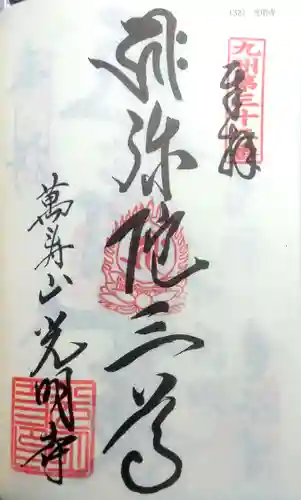 (32) 光明寺
九州第三十二
奉拝
弥陀三尊
萬寿山光明寺